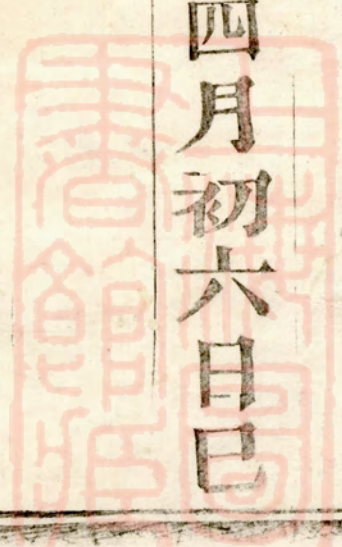 四月初六日巳